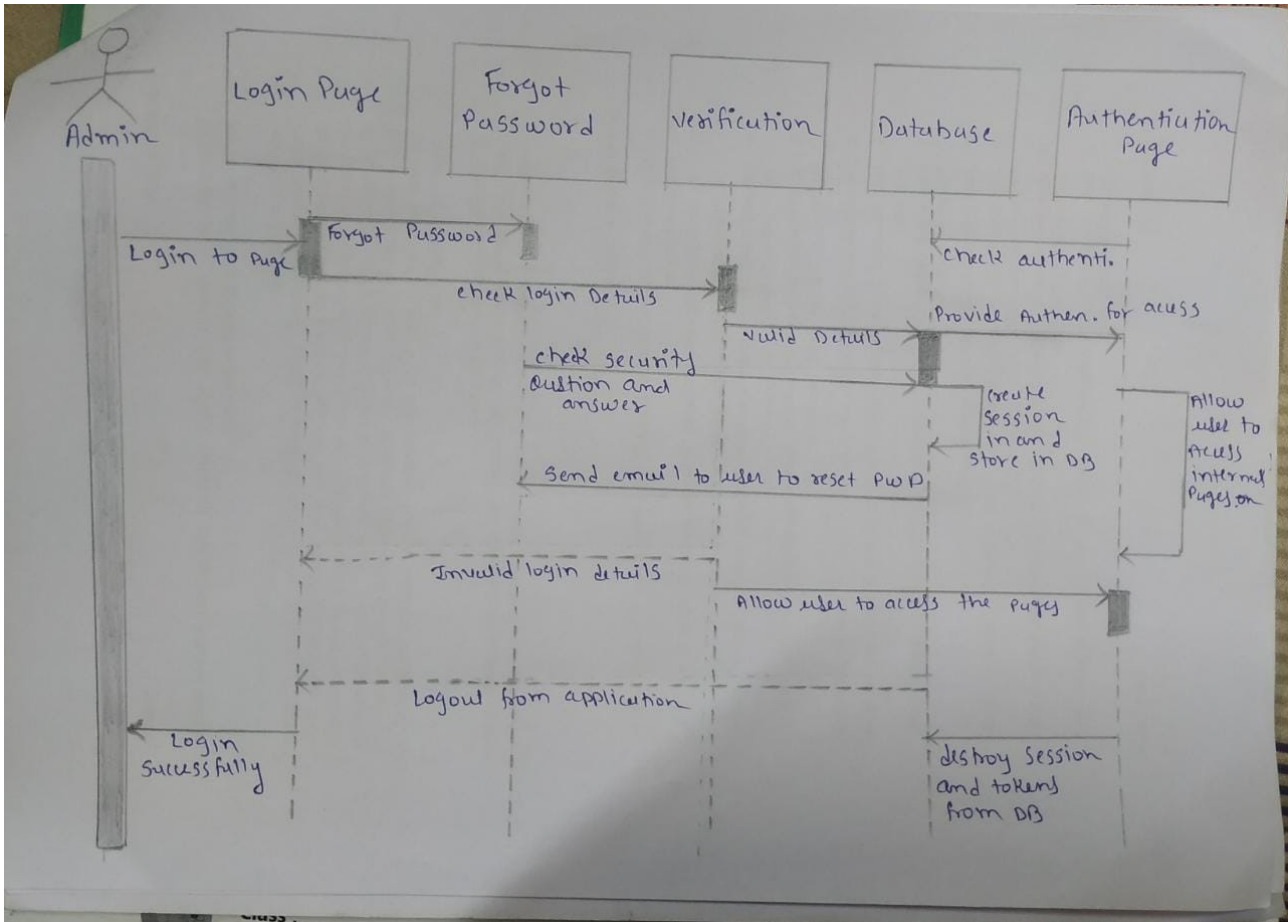 Admin
Login Page
Forgot
Password
Verification
Database
Authentiution
Page
Login to Page
Forgot Password
check authenti.
check login Details
Provide Authen. for acess
Valid Details
check security
Qustion and
answer
create
session
in and
store in DB
Allow
user to
Acess
internal
Pages on
Send email to user to reset PWD
Invalid login details
Allow user to access the pages
Logout from application
Login
Successfully
destroy session
and tokens
from DB
Class :